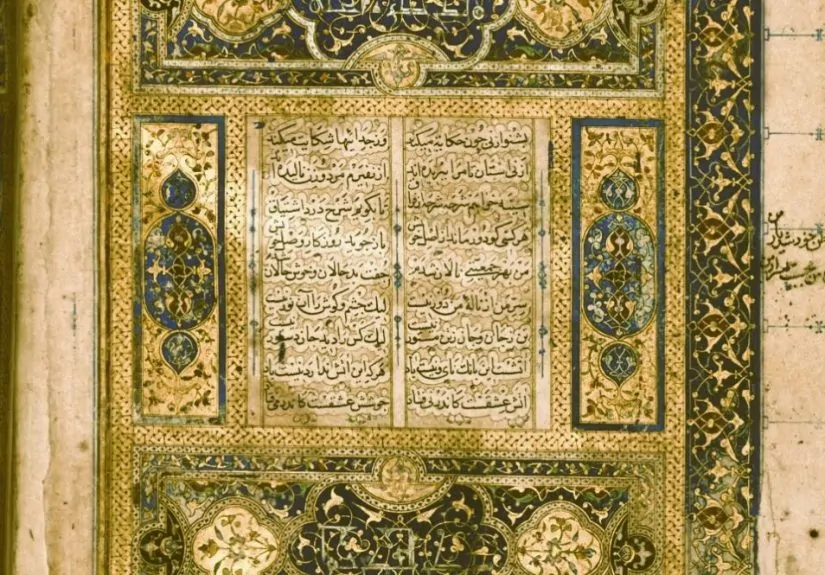 بشنو از نی چون حکایت میکند وز جداییها شکایت میکند
از نیستان تا مرا ببریده اند از نفیرم مرد و زن نالیده اند
سینه خواهم شرحه شرحه از فراق تا بگویم شرح درد اشتیاق
هر کسی کو دور ماند از اصل خویش باز جوید روزگار وصل خویش
من بهر جمعیتی نالان شدم جفت بدحالان و خوش حالان شدم
سر من از نالهٔ من دور نیست لیک چشم و گوش را آن نور نیست
تن ز جان و جان ز تن مستور نیست لیک کس را دید جان دستور نیست
آتشست این بانگ نای و نیست باد هر که این آتش ندارد نیست باد
آتش عشقست کاندر نی فتاد جوشش عشقست کاندر می فتاد